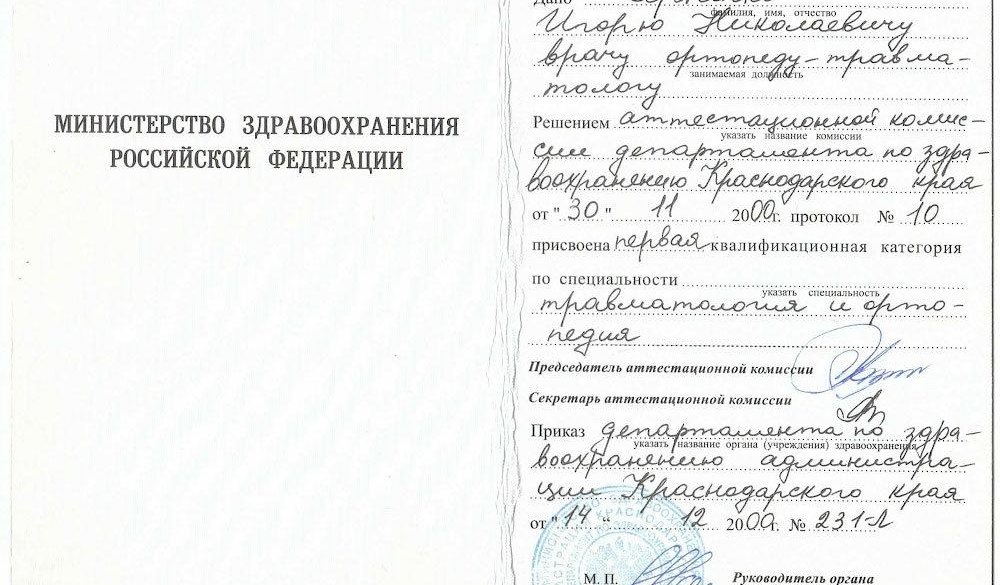 МИНИСТЕРСТВО ЗДРАВООХРАНЕНИЯ
РОССИЙСКОЙ ФЕДЕРАЦИИ
Дано
фамилия, имя, отчество
Игорю Николаевичу
врачу ортопеду-травма-
занимаемая должность
тологу
Решением аттестационной комис-
указать название комиссии
сии департамента по здра-
воохранению Краснодарского края
от "30" 11 2000г. протокол № 10
присвоена первая квалификационная категория
по специальности
указать специальность
травматология и орто-
педия
Председатель аттестационной комиссии
Секретарь аттестационной комиссии
Приказ департамента по здра-
указать название органа (учреждения) здравоохранения
воохранению администра-
ции Краснодарского края
от "14" 12 2000г. № 231-Л
М. П.
Руководитель органа